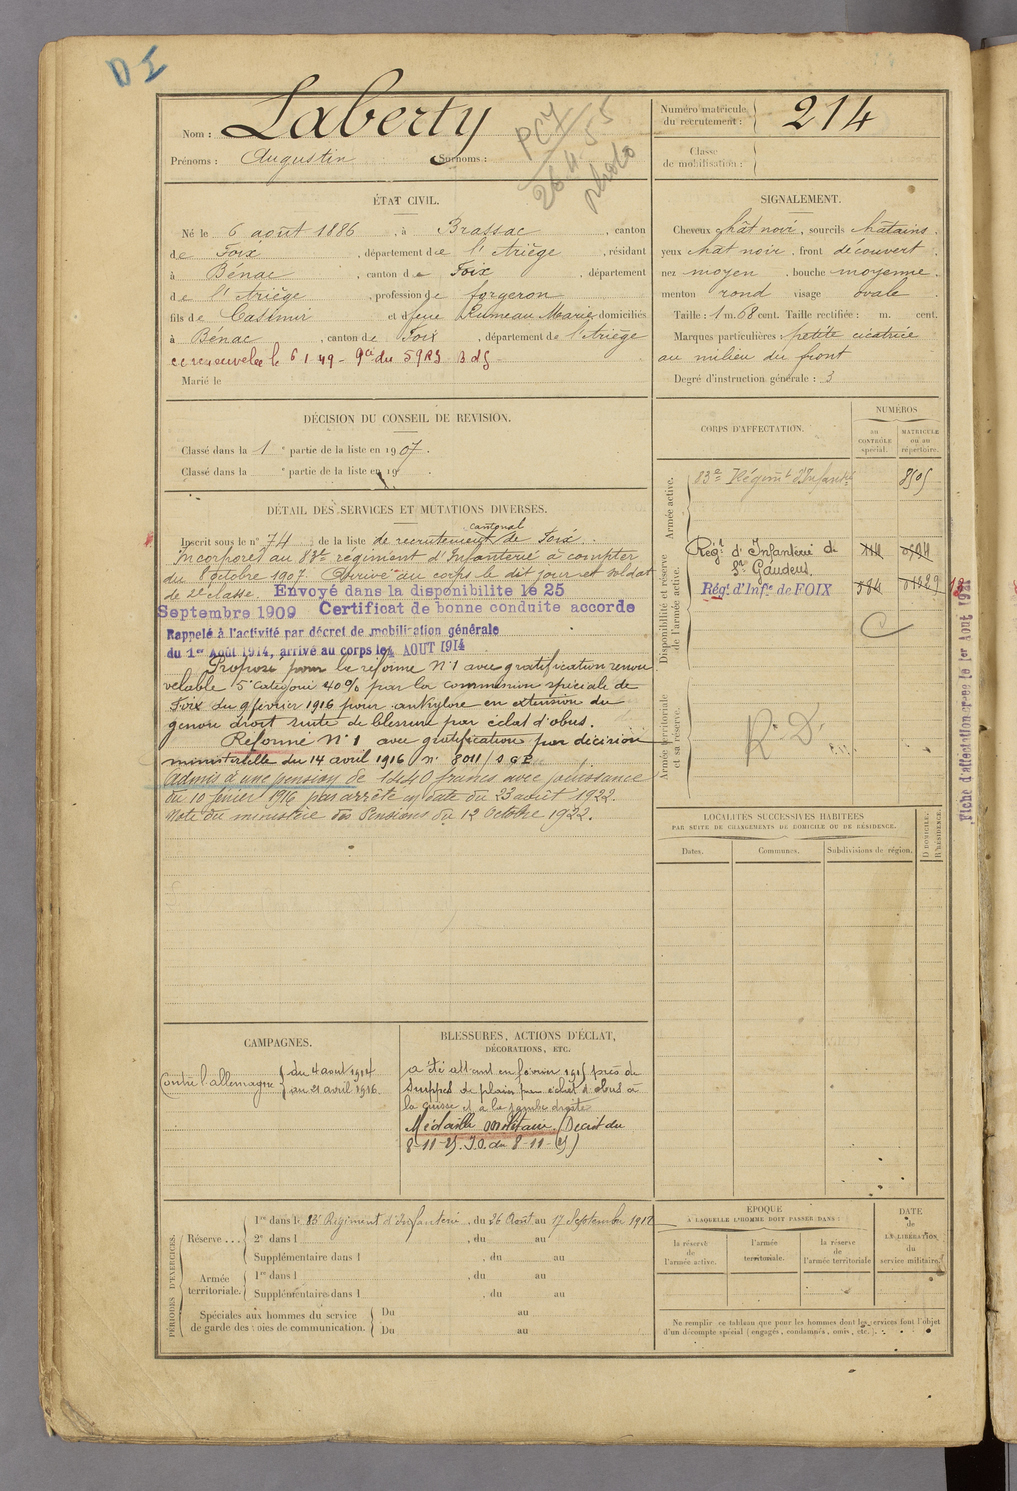 DI
Nom : Laberty
Prénoms : Augustin Surnoms :
26 4 55
photo
Numéro matricule du recrutement : 214
Classe de mobilisation :
ÉTAT CIVIL.
Né le 6 août 1886, à Brassac, canton
de Foix, département de l'Ariège, résidant
à Bénac, canton de Foix, département
de l'Ariège, profession de forgeron
fils de Casimir et de feue Rumeau Marie domiciliés
à Bénac, canton de Foix, département de l'Ariège
Marié le
SIGNALEMENT.
Cheveux chât noir, sourcils châtains.
yeux chât noir, front découvert
nez moyen, bouche moyenne.
menton rond visage ovale
Taille : 1 m. 68 cent. Taille rectifiée : m. cent.
Marques particulières : petite cicatrice
au milieu du front
Degré d'instruction générale : 3
DÉCISION DU CONSEIL DE REVISION.
Classé dans la 1e partie de la liste en 1907.
Classé dans la e partie de la liste en 19 .
DÉTAIL DES SERVICES ET MUTATIONS DIVERSES.
Inscrit sous le n° 74 de la liste de recrutement cantonal de Foix.
Incorporé au 83e régiment d'Infanterie à compter
du 8 octobre 1907. Arrivé au corps le dit jour et soldat
de 2e classe. Envoyé dans la disponibilite le 25
Septembre 1909 Certificat de bonne conduite accorde
Rappelé à l'activité par décret de mobilisation générale
du 1er Août 1914, arrivé au corps le 4 AOUT 1914
Proposé pour la réforme N°1 avec gratification renou
velable 5e catégorie 40% par la commission spéciale de
Foix du 9 février 1916 pour ankylose en extension du
genou droit suite de blessure par éclat d'obus.
Réformé N°1 avec gratification par décision
ministérielle du 14 avril 1916 N° 8011/S G E
Admis d'une pension de 1440 francs avec jouissance
du 10 février 1916 par arrêté en date du 23 août 1922.
Note du ministère des Pensions du 12 Octobre 1922.
CORPS D'AFFECTATION.
NUMÉROS
au CONTRÔLE spécial.
MATRICULE ou au répertoire.
Armée active.
83e Régimt d'Infantie
Disponibilité et réserve de l'armée active.
Régt d'Infanterie de
St Gaudens
Régt d'Infie de FOIX
Armée territoriale et sa réserve.
R. D.
Fiche d'affectation créée le 1er Aout 19
LOCALITÉS SUCCESSIVES HABITÉES
PAR SUITE DE CHANGEMENTS DE DOMICILE OU DE RÉSIDENCE.
Dates.
Communes.
Subdivisions de région.
D DOMICILE.
R RÉSIDENCE.
CAMPAGNES.
Contre l'allemagne
du 4 août 1914
au 21 avril 1916.
BLESSURES, ACTIONS D'ÉCLAT,
DÉCORATIONS, ETC.
a été atteint en février 1915 près de
Suippes de plaie par éclat d'obus à
la cuisse et à la jambe droite
Médaille militaire. (Décret du
PÉRIODES D'EXERCICES.
Réserve . . .
1re dans le 83e Régiment d'Infanterie, du 26 Août au 17 Septembre 1912
2e dans l , du au
Supplémentaire dans l , du au
Armée territoriale.
1re dans l , du au
Supplémentaire dans l , du au
Spéciales aux hommes du service
de garde des voies de communication.
Du au
Du au
EPOQUE
A LAQUELLE L'HOMME DOIT PASSER DANS :
la réserve de l'armée active.
l'armée territoriale.
la réserve de l'armée territoriale
DATE
de
LA LIBÉRATION
du
service militaire.
Ne remplir ce tableau que pour les hommes dont les services font l'objet
d'un décompte spécial (engagés, condamnés, omis, etc.).